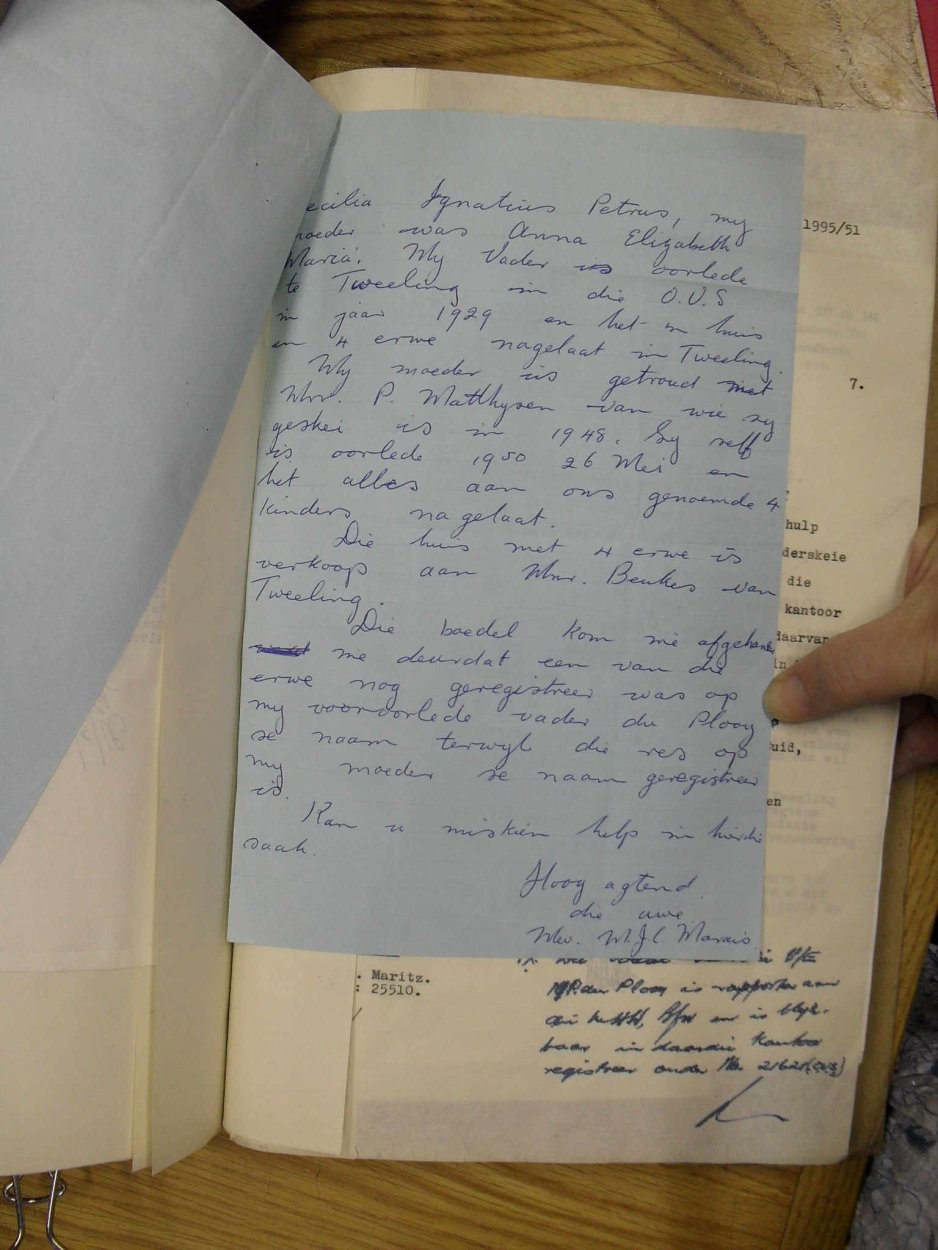 ecilia Ignatius Petrus, my
moeder was Anna Elizabeth
Maria. My Vader is oorlede
te Tweeling in die O.V.S
in jaar 1929 en het 'n huis
en 4 erwe nagelaat in Tweeling.
My moeder is getroud met
Mnr. P. Matthysen van wie sy
geskei is in 1948. Sy self
is oorlede 1950 26 Mei en
het alles aan ons genoemde 4
kinders nagelaat.
Die huis met 4 erwe is
verkoop aan Mnr. Beukes van
Tweeling.
Die boedel kom nie afgehandel
nie deurdat een van die
erwe nog geregistreer was op
my vooroorlede vader du Plooy
se naam terwyl die res op
my moeder se naam geregistreer
is.
Kan u miskien help in hierdie
saak.
Hoog agtend
die uwe
Mev. M.J.C. Marais
1995/51
7.
hulp
derskeie
die
kantoor
daarvan
in
uid,
en
. Maritz.
: 25510.
du Plooy is rapporteer aan
die Bfn en is blyk-
baar in daardie kantoor
registreer onder No. 21621